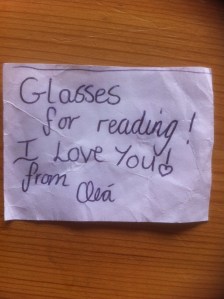 Glasses
for reading!
I Love You!
from Cleá